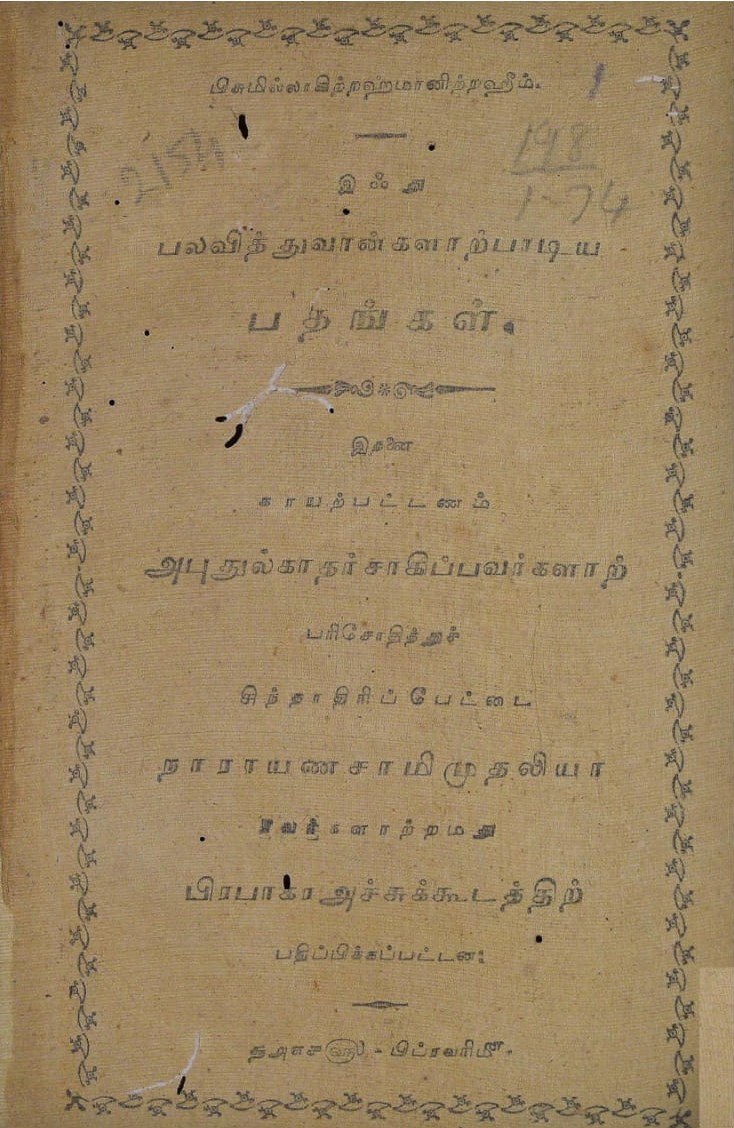 பிசுமில்லாகிற்றஹ்மானிற்றஹீம்.
2154
198
1-74
இஃது
பலவித்துவான்களாற்பாடிய
பதங்கள்.
இதனை
காயற்பட்டணம்
அபுதுல்காதர்சாகிப்பவர்களாற்
பரிசோதித்துச்
சிந்தாதிரிப்பேட்டை
நாராயணசாமிமுதலியா
களாற்றமது
பிரபாகரஅச்சுக்கூடத்திற்
பதிப்பிக்கப்பட்டன:
பிப்ரவரிமீ.